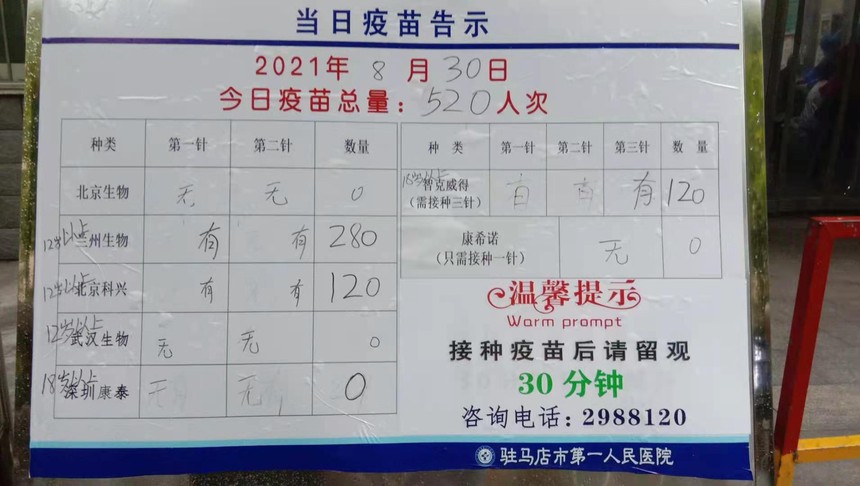 当日疫苗告示
2021年 8 月 30日
今日疫苗总量：520人次
种类 第一针 第二针 数量
北京生物 无 无 0
12岁以上兰州生物 有 有 280
12岁以上北京科兴 有 有 120
12岁以上武汉生物 无 无 0
18岁以上深圳康泰 无 无 0
种 类 第一针 第二针 第三针 数 量
18岁以上智克威得
（需接种三针） 有 有 有 120
康希诺
（只需接种一针） 无 0
温馨提示
Warm prompt
接种疫苗后请留观
30分钟
咨询电话：2988120
驻马店市第一人民医院